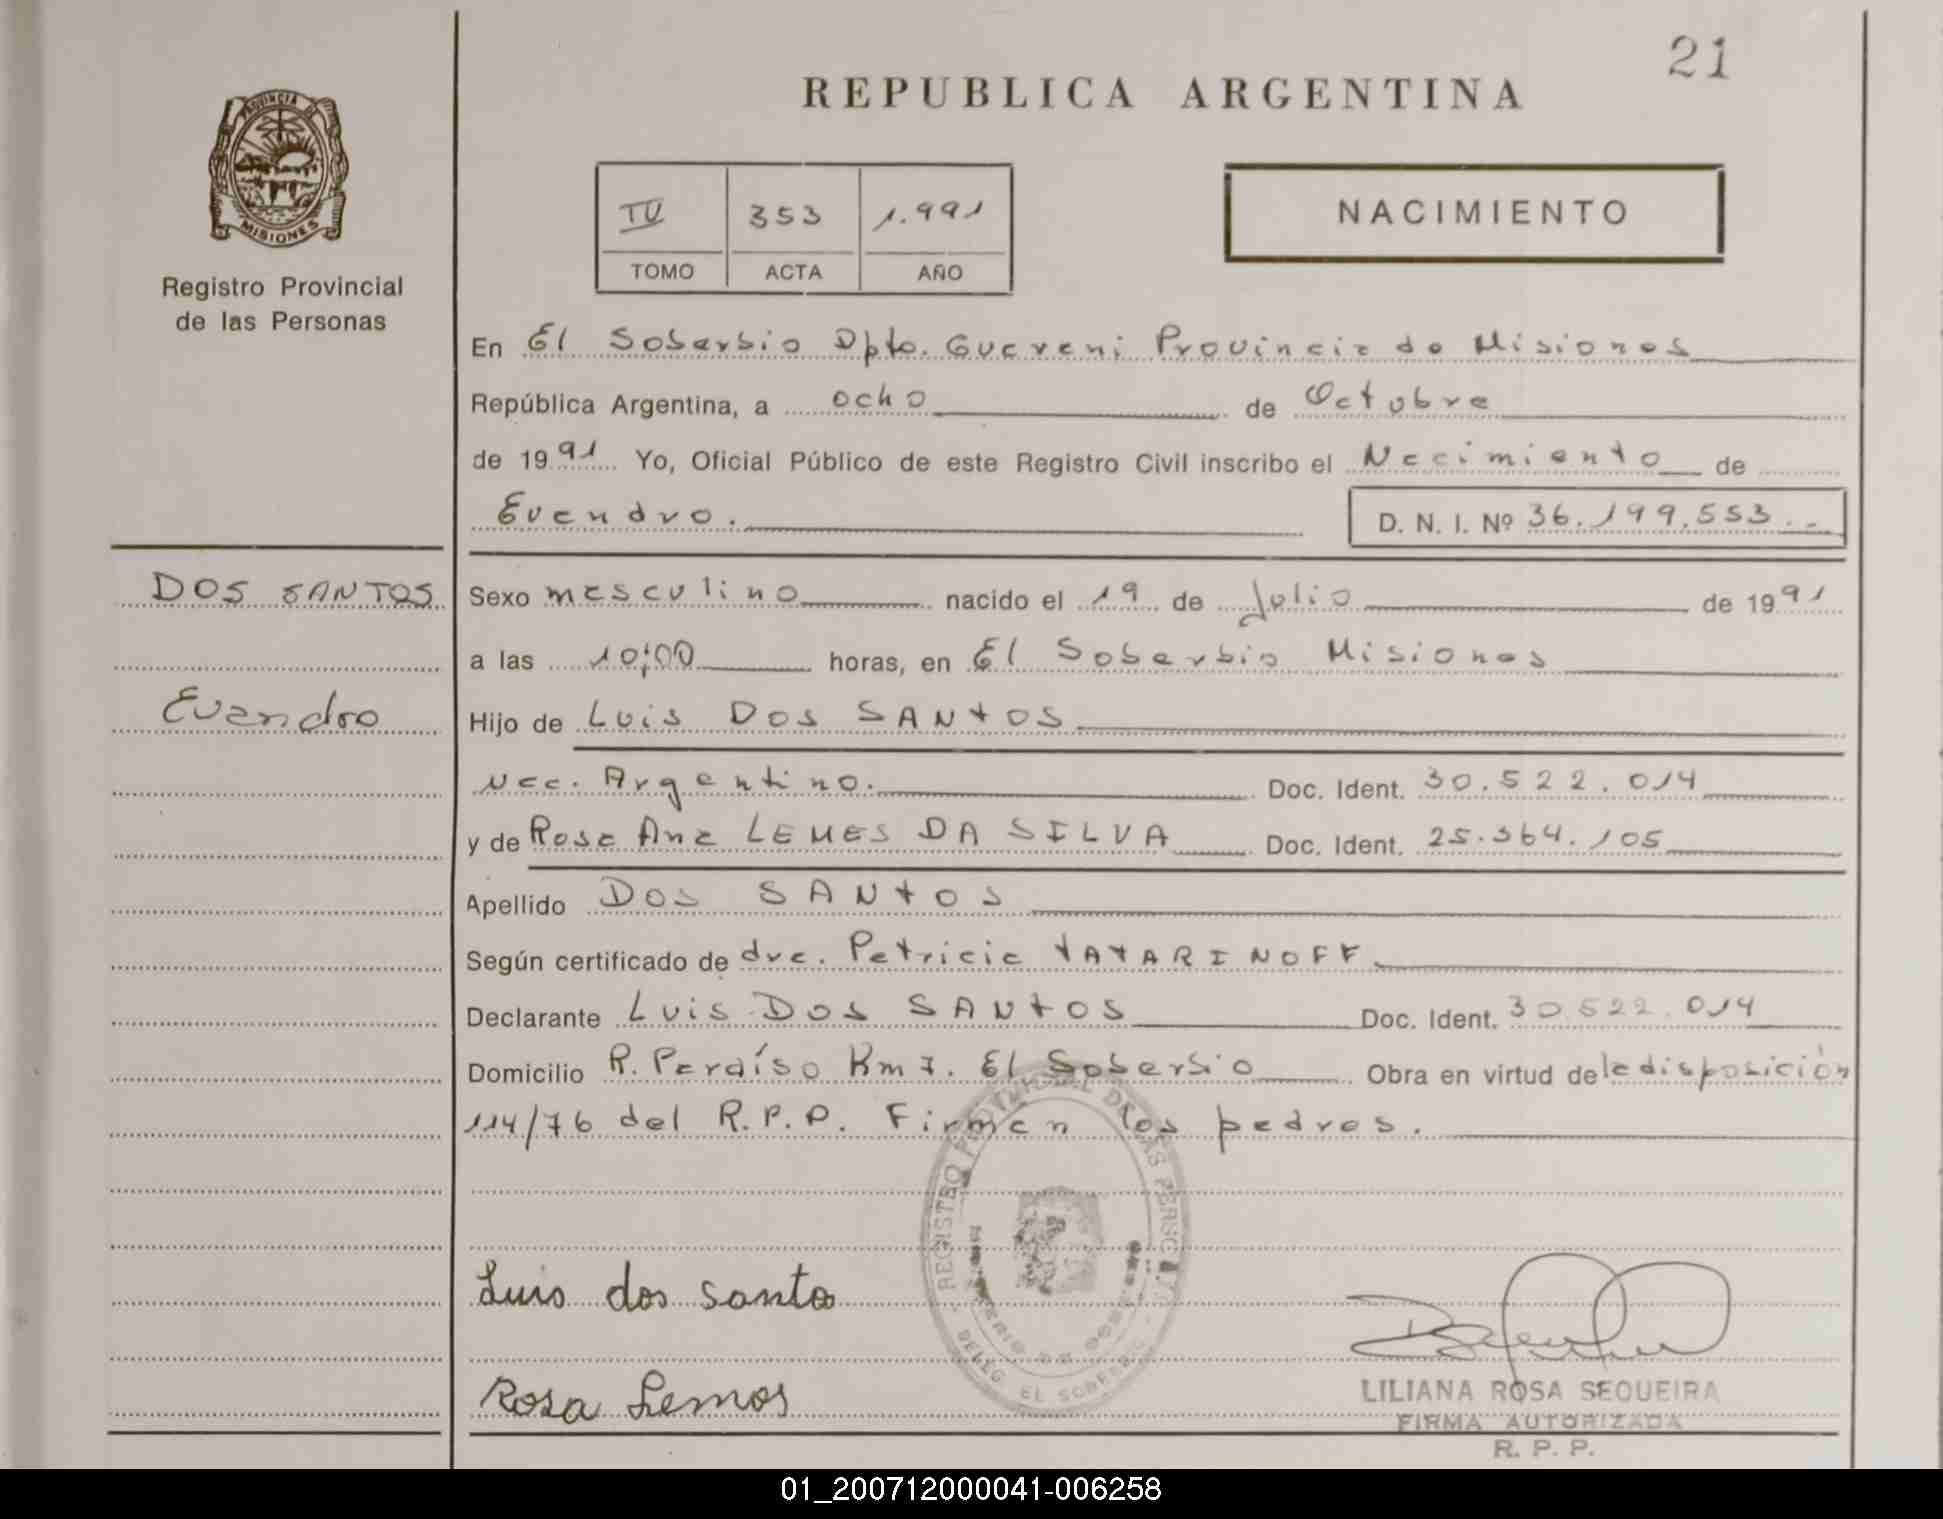 21
REPUBLICA ARGENTINA
PROVINCIA DE
MISIONES
Registro Provincial
de las Personas
IV 353 1.991
TOMO ACTA AÑO
NACIMIENTO
En El Soberbio Dpto. Guarani Provincia de Misiones
República Argentina, a ocho de Octubre
de 1991 Yo, Oficial Público de este Registro Civil inscribo el Nacimiento de
Evandro.
D. N. I. Nº 36.199.553.-
DOS SANTOS
Evandro
Sexo masculino nacido el 19 de Julio de 1991
a las 10:00 horas, en El Soberbio Misiones
Hijo de Luis DOS SANTOS
Nac. Argentino. Doc. Ident. 30.522.014
y de Rosa Ana LEMES DA SILVA Doc. Ident. 25.364.105
Apellido DOS SANTOS
Según certificado de dra. Patricia TATARINOFF.
Declarante Luis DOS SANTOS Doc. Ident. 30.522.014
Domicilio R. Paraíso Km 7. El Soberbio Obra en virtud de la disposición
114/76 del R.P.P. Firman los padres.
REGISTRO PROVINCIAL DE LAS PERSONAS
DELEG. EL SOBERBIO
Luis dos santos
Rosa Lemos
LILIANA ROSA SEQUEIRA
FIRMA AUTORIZADA
R. P. P.
01_200712000041-006258